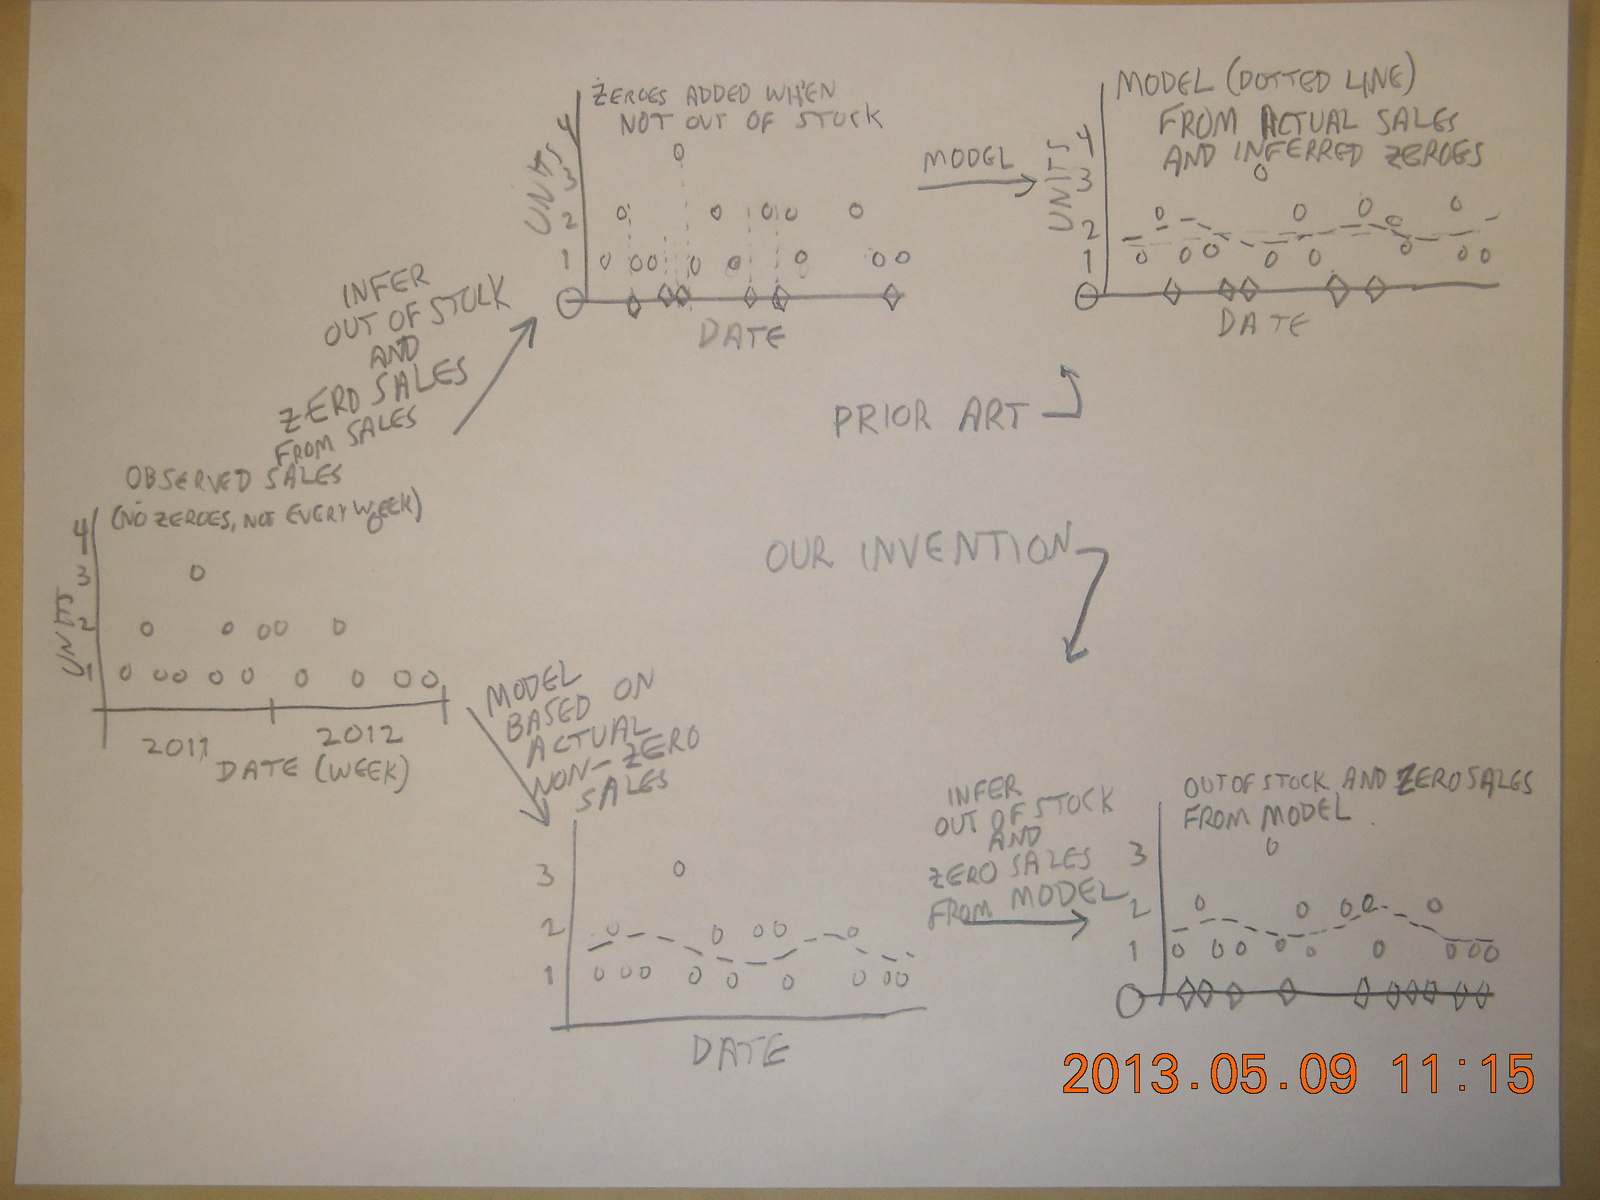 ZEROES ADDED WHEN
NOT OUT OF STOCK
UNITS
4
3
2
1
DATE
MODEL
MODEL (DOTTED LINE)
FROM ACTUAL SALES
AND INFERRED ZEROES
UNITS
4
3
2
1
DATE
INFER
OUT OF STOCK
AND
ZERO SALES
FROM SALES
PRIOR ART
OBSERVED SALES
(NO ZEROES, NOT EVERY WEEK)
UNITS
4
3
2
1
2011
2012
DATE (WEEK)
OUR INVENTION
MODEL
BASED ON
ACTUAL
NON-ZERO
SALES
3
2
1
DATE
INFER
OUT OF STOCK
AND
ZERO SALES
FROM MODEL
OUT OF STOCK AND ZERO SALES
FROM MODEL
3
2
1
2013.05.09 11:15